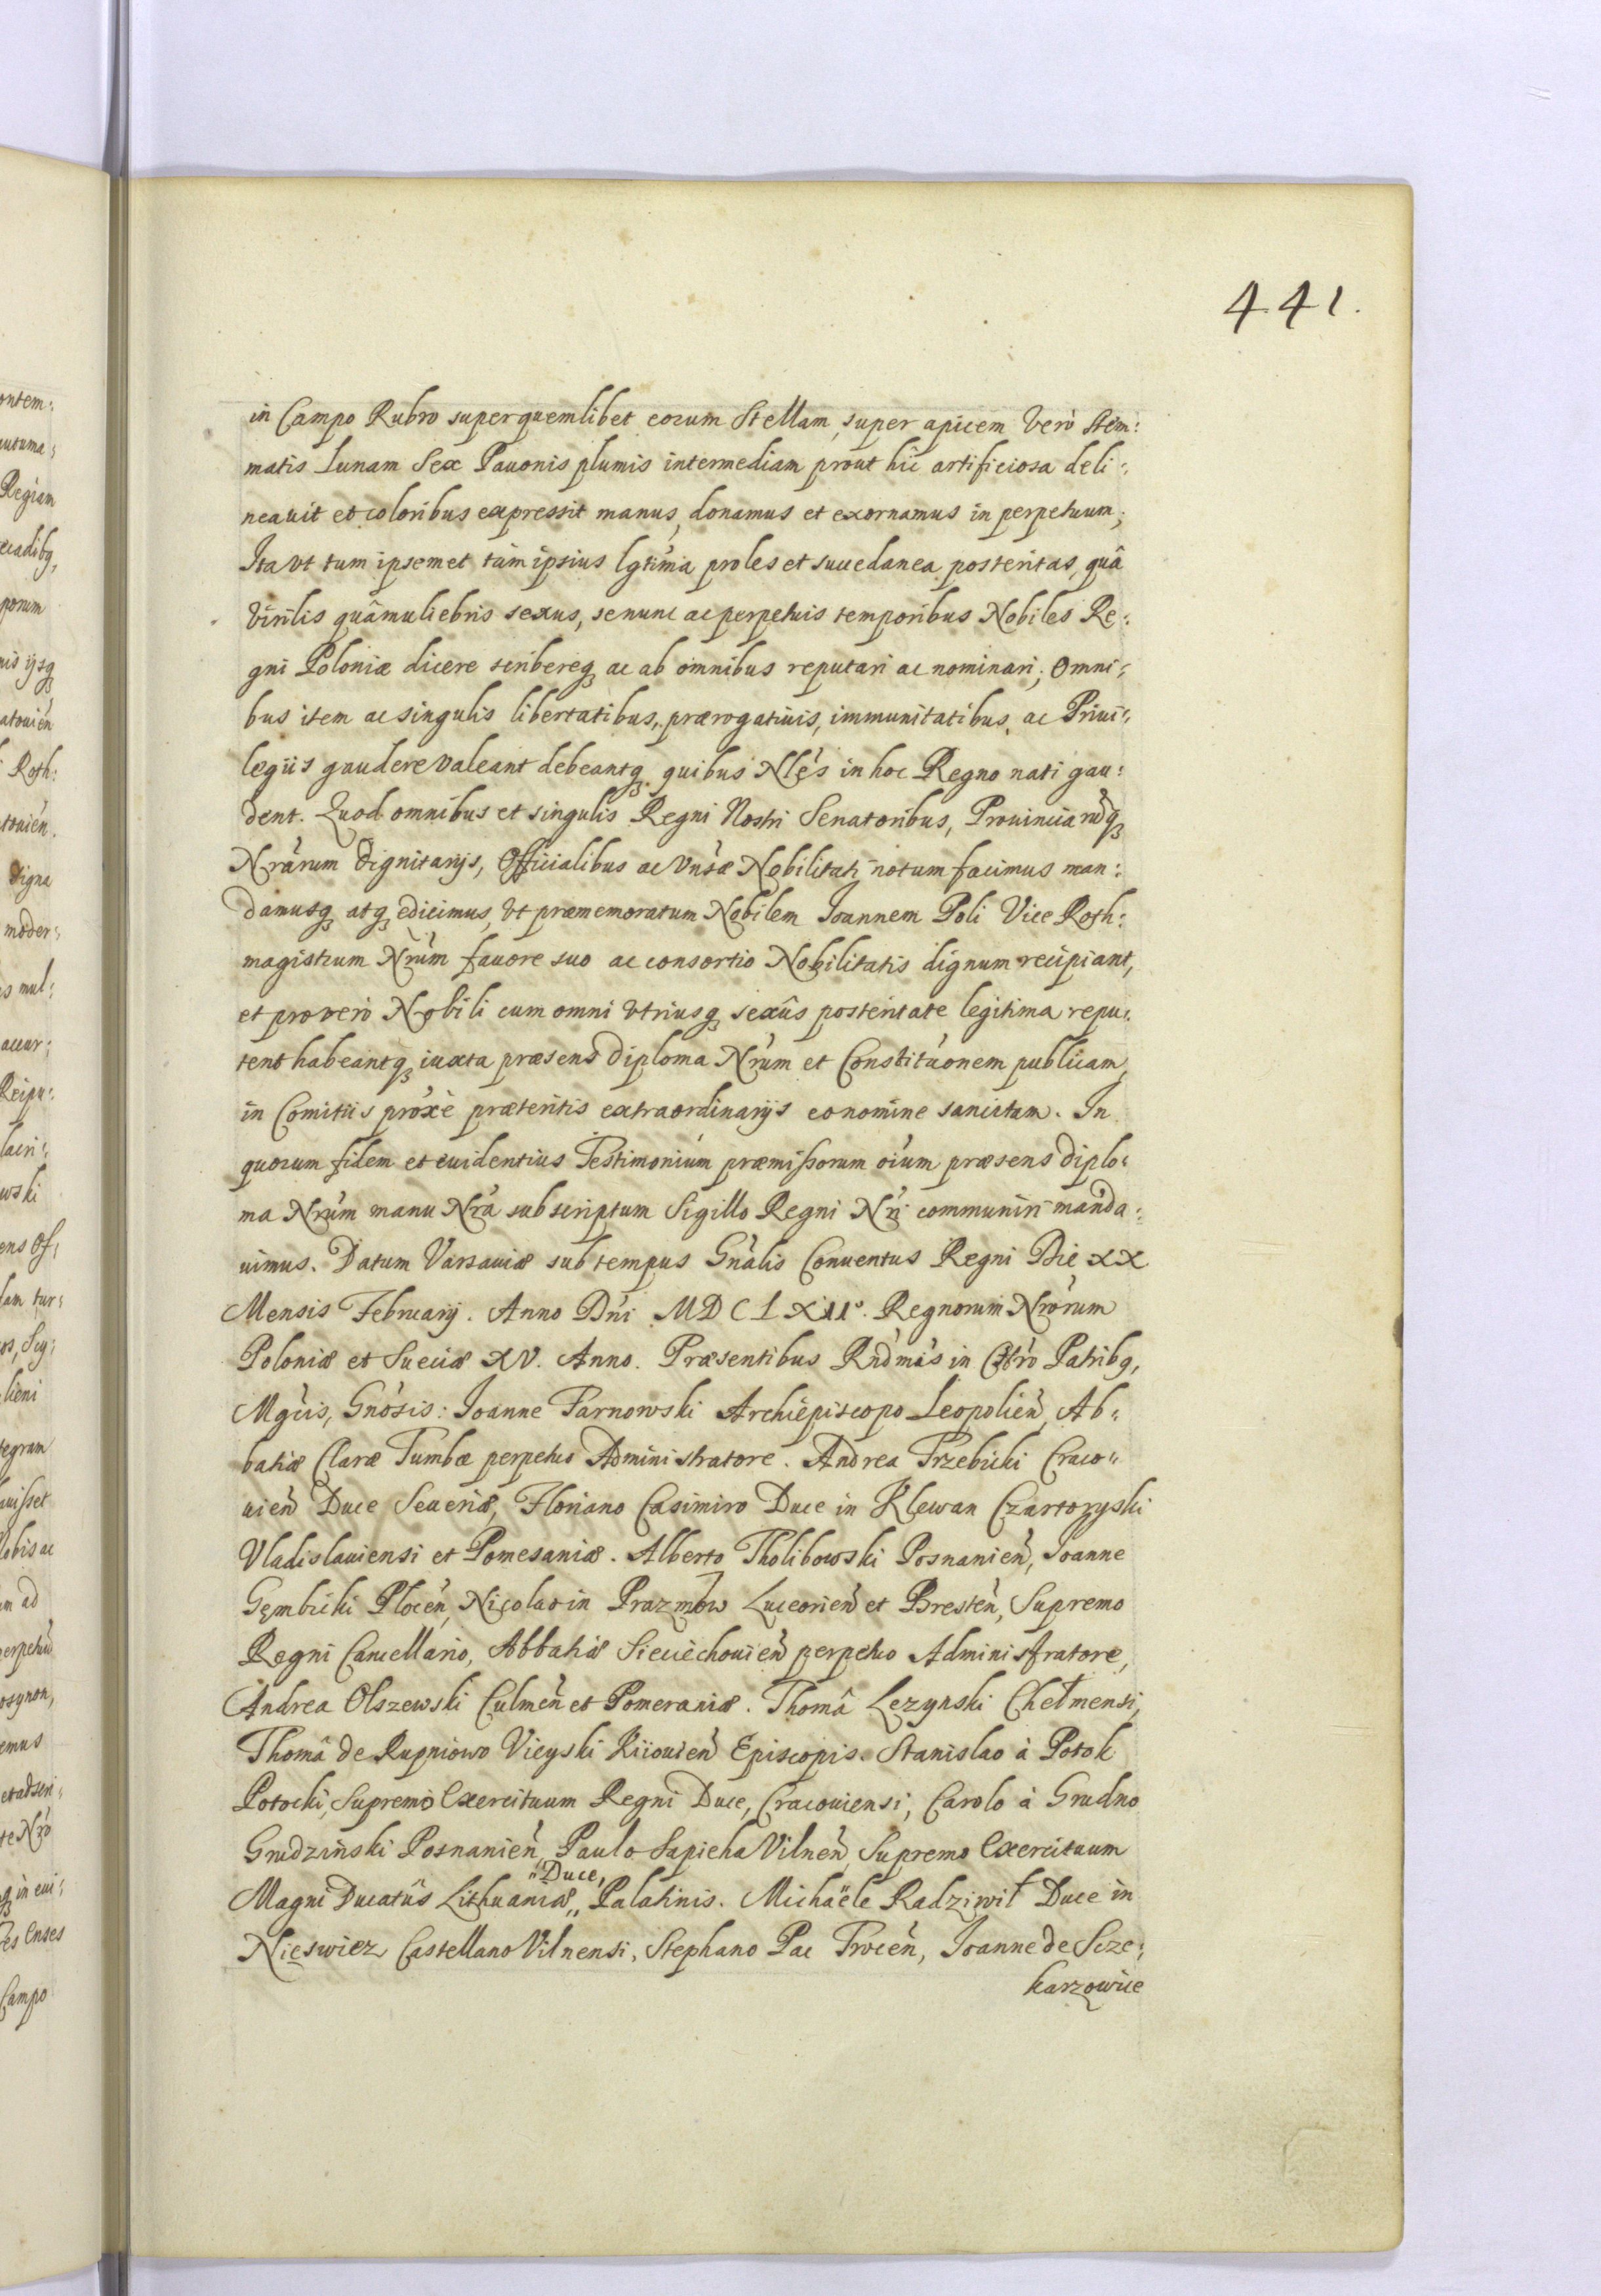 441.
in Campo Rubro super quemlibet eorum Stellam, super apicem Verò Stem:
matis Lunam Sex Pauonis plumis intermediam prout hic artificiosa deli:
neauit et coloribus expressit manus, donamus et exornamus in perpetuum;
Ita vt tum ipsemet tùm ipsius lgtima proles et succedanea posteritas, quâ
Virilis quâ muliebris sexus, se nunc ac perpetuis temporibus Nobiles Re:
gni Poloniæ dicere scribereq₃ ac ab omnibus reputari ac nominari; Omni:
bus item ac singulis libertatibus, prærogatiuis, immunitatibus, ac Priui:
legiis gaudere valeant debeantq₃ quibus Nlẽs in hoc Regno nati gau:
dent. Quod omnibus et singulis Regni Nostri Senatoribus, Prouinciarũq₃
Nrãrum Dignitarijs, Officialibus ac Vnsæ Nobilitati notum facimus man:
damusq₃ atq₃ edicimus, Vt præmemoratum Nobilem Joannem Poli Vice Roth:
magistrum Nrũm fauore suo ac consortio Nobilitatis dignum recipiant,
et pro vero Nobili cum omni Vtriusq₃ sexûs posteritate legitima repu:
tent habeantq₃ iuxta præsens diploma Nrũm et Constitũonem publicam,
in Comitiis prõxè præteritis extraordinarijs eo nomine sancitam. In
quorum fidem et euidentius Testimonium præmissorum oĩum præsens diplo:
ma Nrũm manu Nrã subscriptum Sigillo Regni Nrĩ communiri manda:
uimus. Datum Varsauiæ sub tempus Gnãlis Conuentus Regni Die XX
Mensis Februarij. Anno Dnĩ MDCLXII°. Regnorum Nrõrum
Poloniæ et Sueciæ XV. Anno. Præsentibus Rndmĩs in Chrõ Patribq,
Mgcĩs, Gnõsis: Joanne Tarnowski Archiepiscopo Leopolieñ, Ab:
batiæ Claræ Tumbæ perpetuo Administratore. Andrea Trzebicki Craco:
uieñ Duce Seueriæ, Floriano Casimiro Duce in Klewan Czartoryski
Vladislauiensi et Pomesaniæ. Alberto Tholibowski Posnanieñ, Joanne
Gęmbicki Plocẽn, Nicolao in Prazmow Luceorieñ et Bresteñ, Supremo
Regni Cancellario, Abbatiæ Sieciechouieñ perpetuo Administratore,
Andrea Olszewski Culmeñ et Pomeraniæ. Thomâ Lezynski Chełmensi,
Thomâ de Rupniowo Vieyski Kiiouieñ Episcopis. Stanislao à Potok
Potocki, Supremo Exercituum Regni Duce, Cracouiensi, Carolo à Grudno
Grudzinski Posnanieñ, Paulo Sapieha Vilneñ, Supremo Exercituum
"Duce,
Magni Ducatûs Lithuaniæ,, Palatinis. Michaële Radziwił Duce in
Nieswiez Castellano Vilnensi, Stephano Pac Troceñ, Joanne de Scze:
karzowice